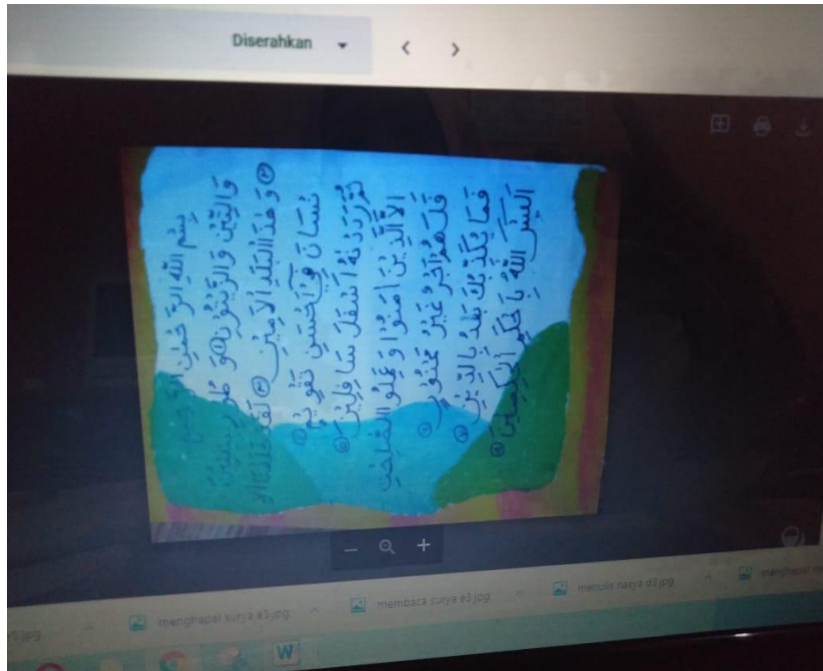 Diserahkan
بِسْمِ اللهِ الرَّحْمٰنِ الرَّحِيْمِ
وَالتِّيْنِ وَالزَّيْتُوْنِ ① وَطُوْرِ سِيْنِيْنَ
② وَهٰذَا الْبَلَدِ الْاَمِيْنِ ③ لَقَدْ خَلَقْنَا الْاِ
نْسَانَ فِيْٓ اَحْسَنِ تَقْوِيْمٍ ④
ثُمَّ رَدَدْنٰهُ اَسْفَلَ سَافِلِيْنَ ⑤
اِلَّا الَّذِيْنَ اٰمَنُوْا وَعَمِلُوا الصّٰلِحٰتِ
فَلَهُمْ اَجْرٌ غَيْرُ مَمْنُوْنٍ ⑥
فَمَا يُكَذِّبُكَ بَعْدُ بِالدِّيْنِ ⑦
اَلَيْسَ اللّٰهُ بِاَحْكَمِ الْحٰكِمِيْنَ ⑧
menghapal surya e3.jpg membaca surya e3.jpg menulis nasya d3.jpg menghapal